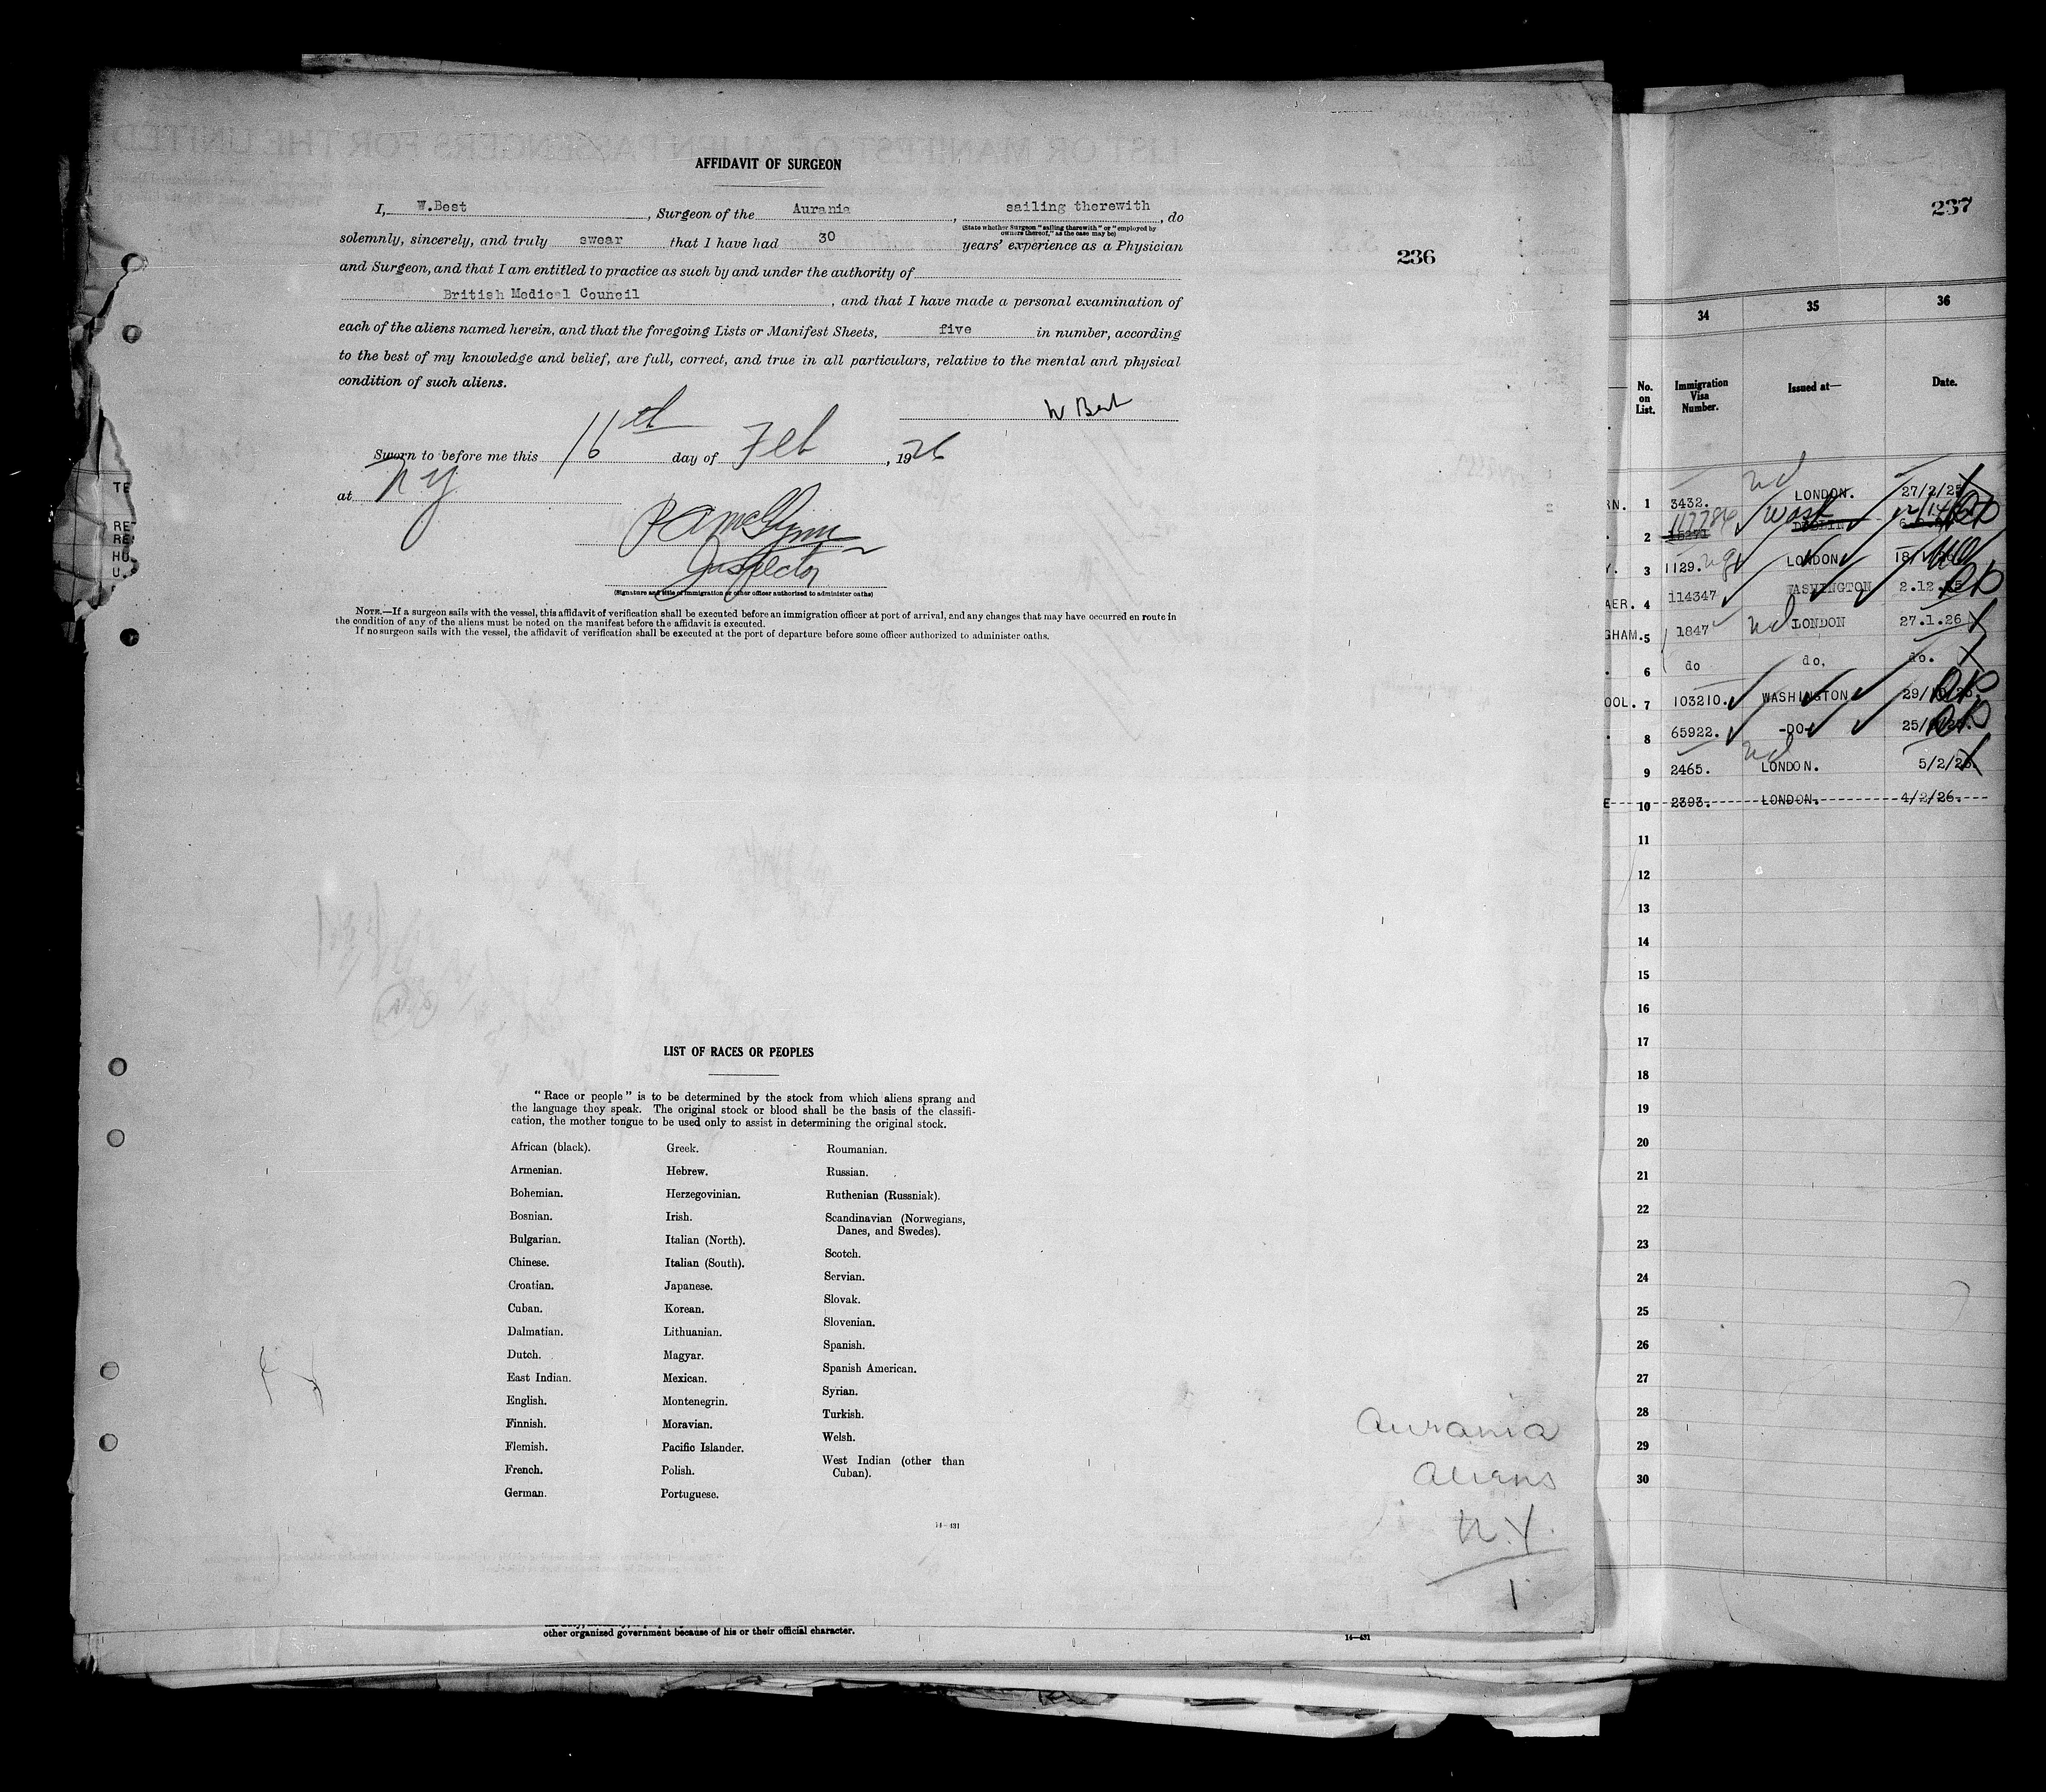 AFFIDAVIT OF SURGEON
I, W.Best, Surgeon of the Aurania, sailing therewith, do
(State whether Surgeon "sailing therewith" or "employed by
owners thereof," as the case may be)
solemnly, sincerely, and truly swear that I have had 30 years' experience as a Physician
and Surgeon, and that I am entitled to practice as such by and under the authority of
British Medical Council, and that I have made a personal examination of
each of the aliens named herein, and that the foregoing Lists or Manifest Sheets, five in number, according
to the best of my knowledge and belief, are full, correct, and true in all particulars, relative to the mental and physical
condition of such aliens.
W Best
Sworn to before me this 16th day of Feb, 1926
at N Y
P A McGinn
Inspector
(Signature and title of immigration or other officer authorized to administer oaths)
NOTE.—If a surgeon sails with the vessel, this affidavit of verification shall be executed before an immigration officer at port of arrival, and any changes that may have occurred en route in
the condition of any of the aliens must be noted on the manifest before the affidavit is executed.
If no surgeon sails with the vessel, the affidavit of verification shall be executed at the port of departure before some officer authorized to administer oaths.
236
LIST OF RACES OR PEOPLES
"Race or people" is to be determined by the stock from which aliens sprang and
the language they speak. The original stock or blood shall be the basis of the classifi-
cation, the mother tongue to be used only to assist in determining the original stock.
African (black).
Armenian.
Bohemian.
Bosnian.
Bulgarian.
Chinese.
Croatian.
Cuban.
Dalmatian.
Dutch.
East Indian.
English.
Finnish.
Flemish.
French.
German.
Greek.
Hebrew.
Herzegovinian.
Irish.
Italian (North).
Italian (South).
Japanese.
Korean.
Lithuanian.
Magyar.
Mexican.
Montenegrin.
Moravian.
Pacific Islander.
Polish.
Portuguese.
Roumanian.
Russian.
Ruthenian (Russniak).
Scandinavian (Norwegians,
Danes, and Swedes).
Scotch.
Servian.
Slovak.
Slovenian.
Spanish.
Spanish American.
Syrian.
Turkish.
Welsh.
West Indian (other than
Cuban).
14—431
Aurania
Aliens
N.Y.
1
other organized government because of his or their official character.
14—431
TE
RE
RE
HU
U.
237
34 35 36
No. on List. Immigration Visa Number. Issued at— Date.
RN. 1 3432. nd LONDON. 27/2/25
2 117784 Wash
Y. 3 1129. LONDON
AER. 4 114347 WASHINGTON 2.12.25
GHAM. 5 1847 nd LONDON 27.1.26
6 do do. do.
OOL. 7 103210. WASHINGTON
8 65922. -DO-
9 2465. nd LONDON. 5/2/26.
E 10 2393. LONDON. 4/2/26.
11
12
13
14
15
16
17
18
19
20
21
22
23
24
25
26
27
28
29
30